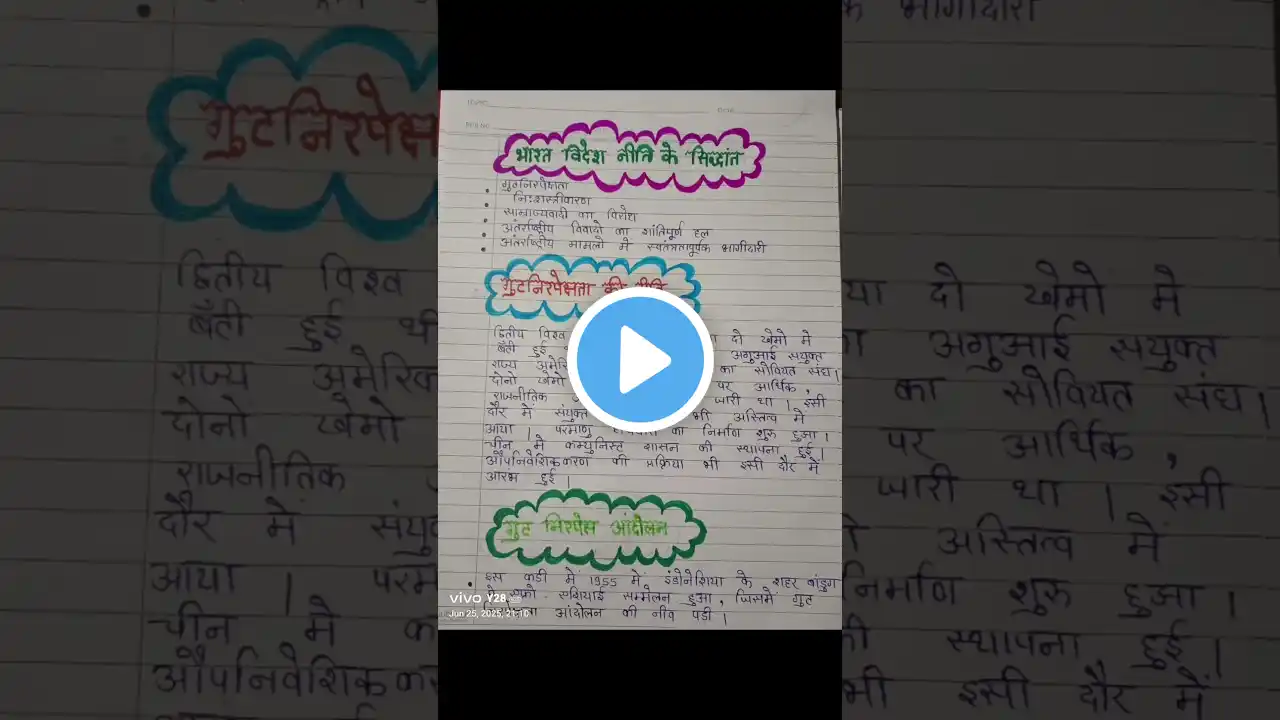 भारत विदेश नीति के सिद्धांत
गुटनिरपेक्षता
नि:शस्त्रीकरण
साम्राज्यवादी का विरोध
अंतर्राष्ट्रीय विवादो का शांतिपूर्ण हल
अंतर्राष्ट्रीय मामलो में स्वतंत्रतापूर्वक भागीदारी
गुटनिरपेक्षता की नीति
द्वितीय विश्व दो खेमो में
बँटी हुई थी अगुआई सयुक्त
राज्य अमेरिक का सोवियत संघ।
दोनो खेमो पर आर्थिक,
राजनीतिक जारी था। इसी
दौर में संयुक्त भी अस्तित्व में
आया। परमाणु का निर्माण शुरू हुआ।
चीन मे कम्युनिस्ट शासन की स्थापना हुई।
औपनिवेशिककरण की प्रक्रिया भी इसी दौर में
आरंभ हुई।
गुट निरपेक्ष आंदोलन
इस कडी में 1955 में इंडोनेशिया के शहर बांडुग
सम्मेलन हुआ, जिसमें गुट
आंदोलन की नीव पडी।
vivo Y28
Jun 25, 2025, 21:10